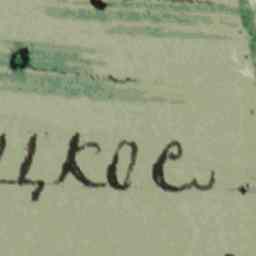 цкое.